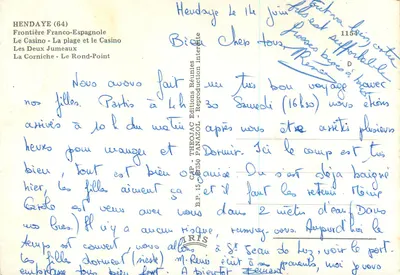 HENDAYE (64)
Frontière Franco-Espagnole
Le Casino - La plage et le Casino
Les Deux Jumeaux
La Corniche - Le Rond-Point
Hendaye le 14 juin
Bien chers tous,
Nous avons fait un très bon voyage avec
nos filles. Partis à 4h30 Samedi (16h30) nous étions
arrivés à 10h du matin après nous être arrêtés plusieurs
heures pour manger et dormir. Ici le camp est très
bien, tout est bien organisé. On s'est déjà baigné
hier, les filles aiment ça et il faut les retenir
Carole est venue avec nous dans 2 mètres d'eau (dans
nos bras) Il n'y a aucun risque, rassurez-vous. Aujourd'hui le
temps est couvert, nous allons à St Jean de Luz voir le port
les filles dorment (sieste)
embrasse tous bien fort. A bientôt
CAP - THEOJAC Editions Réunies
PANAZOL - Reproduction interdite
PARIS